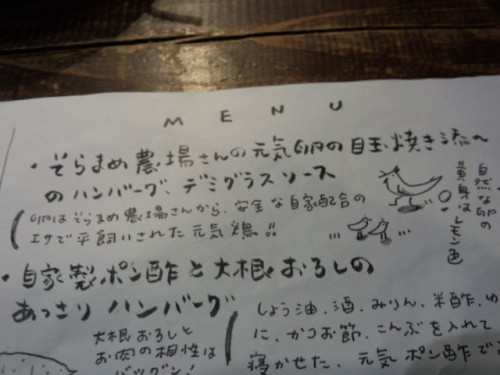 MENU
・そらまめ農場さんの元気卵の目玉焼き添え
のハンバーグ、デミグラスソース
卵はそらまめ農場さんから、安全な自家配合の
エサで平飼いされた元気鶏!!
自然な卵の
黄身はレモン色
・自家製ポン酢と大根おろしの
あっさりハンバーグ
大根おろしと
お肉の相性は
バツグン!
しょう油、酒、みりん、米酢、ゆ
に、かつお節、こんぶを入れて
寝かせた、元気ポン酢で